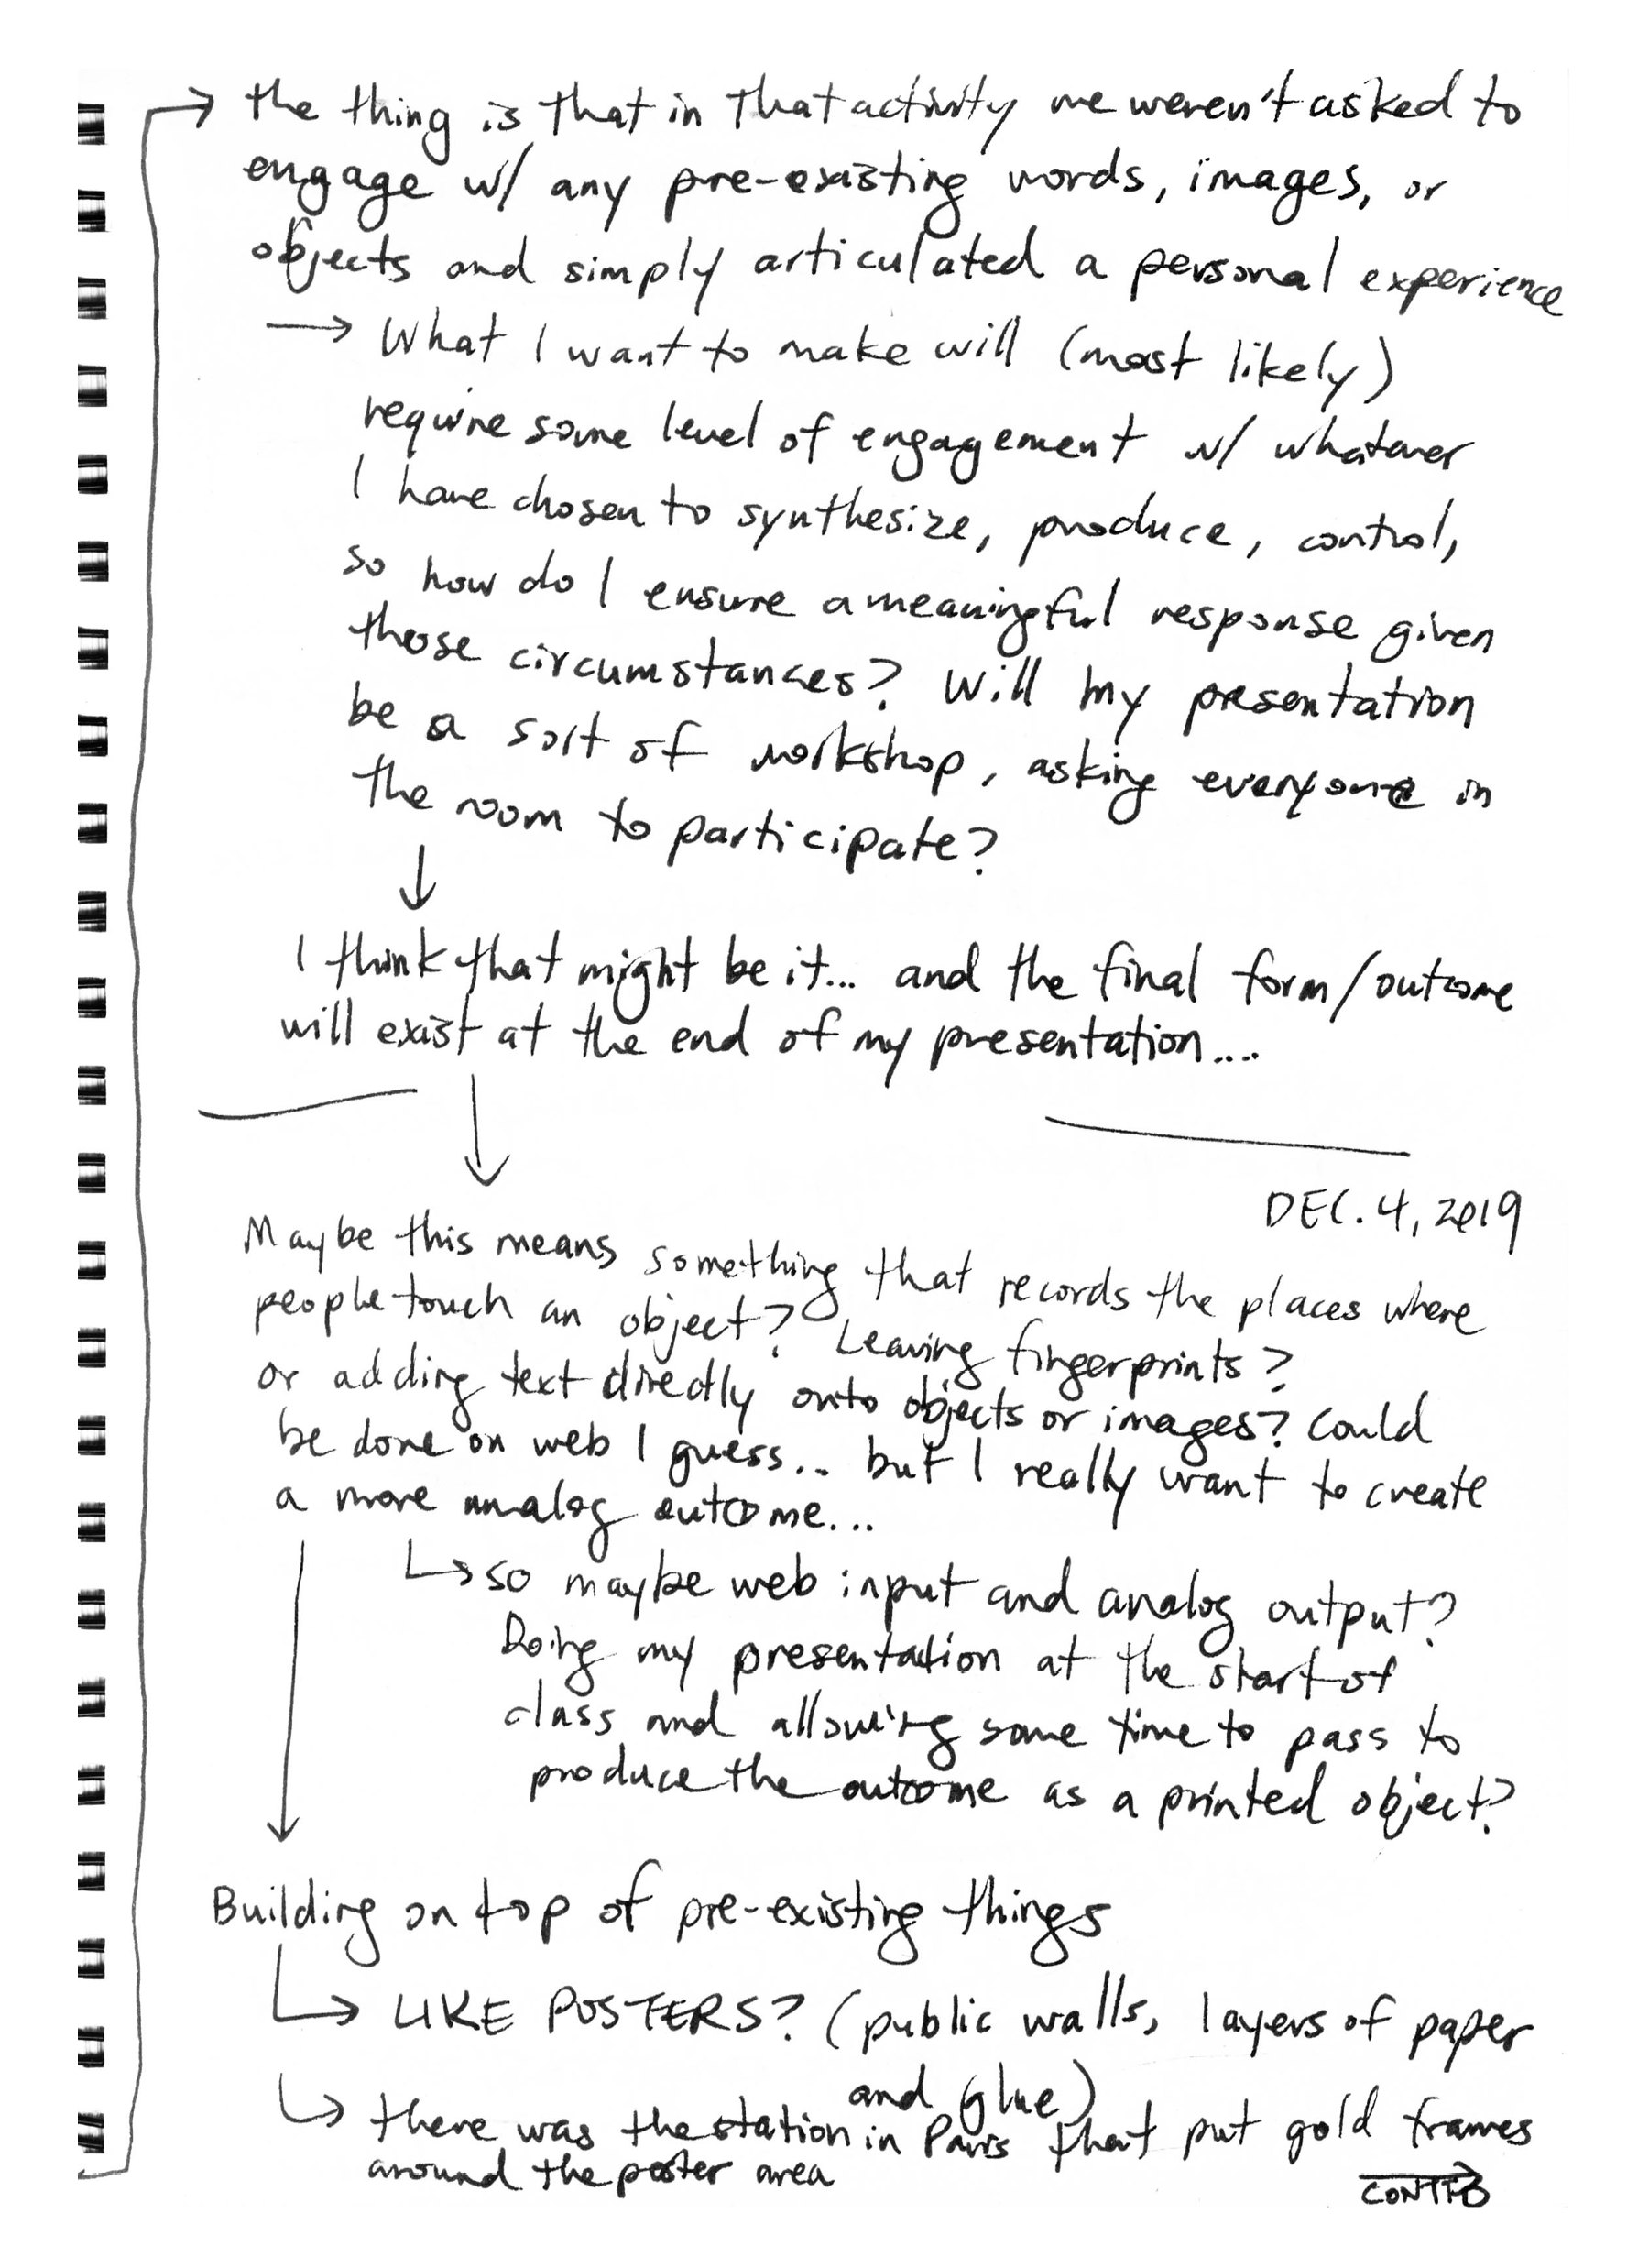 → the thing is that in that activity we weren't asked to
engage w/ any pre-existing words, images, or
objects and simply articulated a personal experience
→ What I want to make will (most likely)
require some level of engagement w/ whatever
I have chosen to synthesize, produce, control,
so how do I ensure a meaningful response given
those circumstances? Will my presentation
be a sort of workshop, asking everyone in
the room to participate?
↓
I think that might be it... and the final form/outcome
will exist at the end of my presentation....
↓
DEC. 4, 2019
Maybe this means something that records the places where
people touch an object? Leaving fingerprints?
or adding text directly onto objects or images? Could
be done on web I guess... but I really want to create
a more analog outcome...
↳ so maybe web input and analog output?
Doing my presentation at the start of
class and allowing some time to pass to
produce the outcome as a printed object?
↓
Building on top of pre-existing things
↳ LIKE POSTERS? (public walls, layers of paper
and glue)
↳ there was the station in Paris that put gold frames
around the poster area